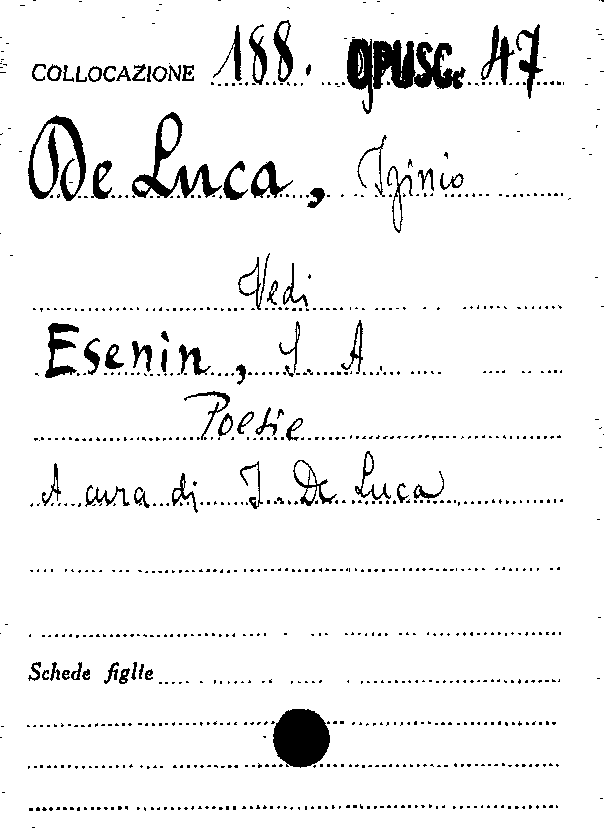 COLLOCAZIONE 188. OPUSC. 47
De Luca, Iginio
Vedi
Esenin, S. A.
Poesie
A cura di I. De Luca
Schede figlie